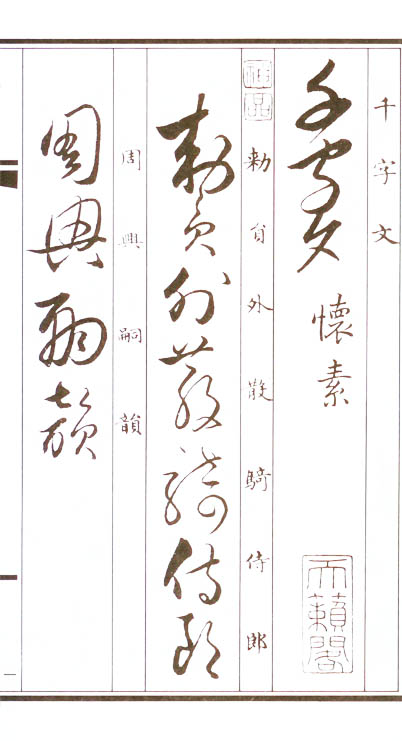 千字文
千字文 懷素
天籟閣
神品
勅員外散騎侍郎
勅員外散騎侍郎
周興嗣韻
周興嗣韻
一